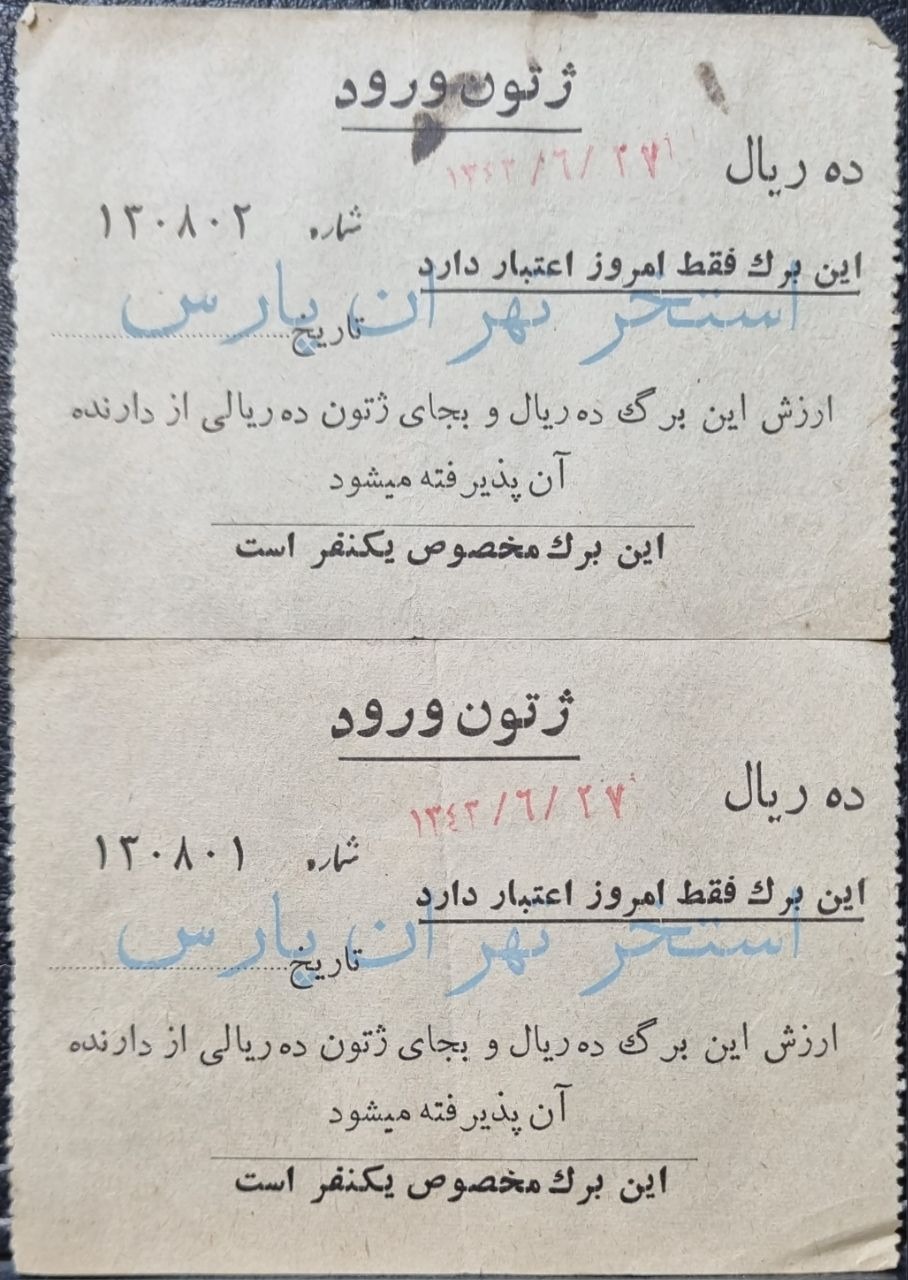 ژتون ورود
ده ریال
۱۳۴۳/۶/۲۷
شماره ۱۳۰۸۰۲
این برك فقط امروز اعتبار دارد
استخر تهران پارس
تاریخ
ارزش این برگ ده ریال و بجای ژتون ده ریالی از دارنده
آن پذیرفته میشود
این برك مخصوص یکنفر است
ژتون ورود
ده ریال
۱۳۴۳/۶/۲۷
شماره ۱۳۰۸۰۱
این برك فقط امروز اعتبار دارد
استخر تهران پارس
تاریخ
ارزش این برگ ده ریال و بجای ژتون ده ریالی از دارنده
آن پذیرفته میشود
این برك مخصوص یکنفر است